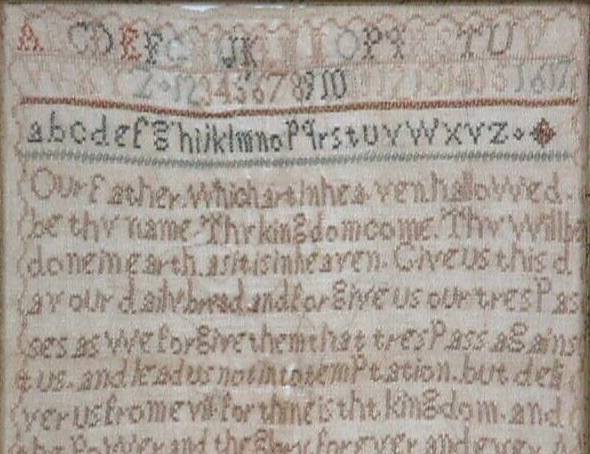 A CDEFG JK L I OPq TU
Z 12345678910 11 12 13 14 15 16 17
abcdefghijklmnopqrstuvwxyz
Our father. which art In hea.ven. hallowed.
be thy name. Thy kingdom come. Thy will be
done in earth. as it is in heaven. Give us this d
ay our daily bread. and for give us our tresPas
ses as we forgive them that tresPass agains
t us. and lead us not in to temPtation. but deli
ver us from evil. for thine is tht kingdom. and
the Power and the Glory for ever and ever